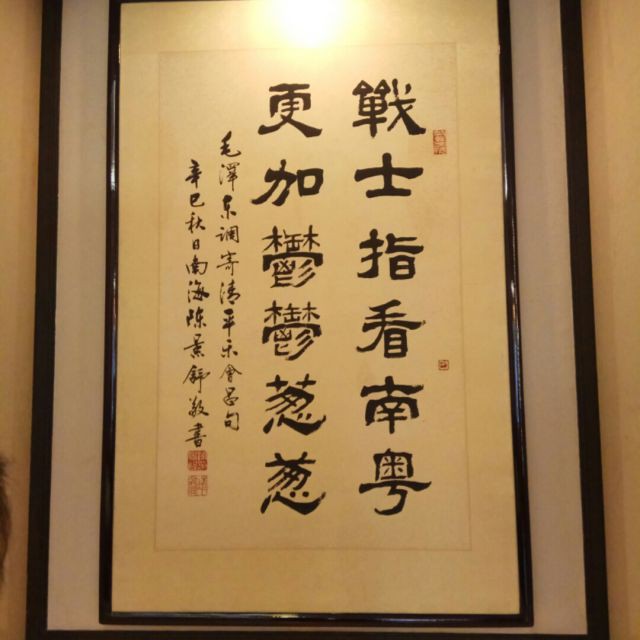 戰士指看南粤
更加鬱鬱葱葱
毛澤东调寄清平乐會昌句
辛巳秋日南海陈景舒敬書